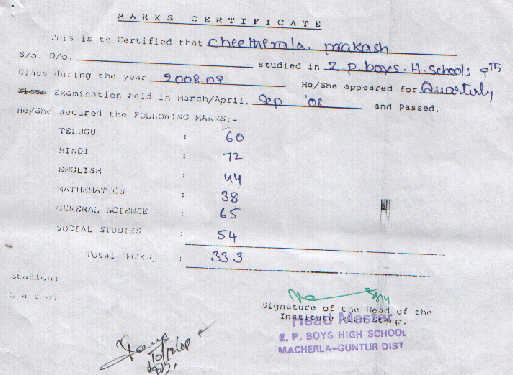 MARKS CERTIFICATE
This is to Certified that Cheethirala. prakash
S/o. D/o. studied in Z. P. boys. H. School; 9th
Class during the year 2008.09 He/She appeared for Quarterly
Examination held in March/April, Sep '08 and Passed.
He/She secured the FOLLOWING MARKS:-
TELUGU : 60
HINDI : 72
ENGLISH : 44
MATHEMATICS : 38
GENERAL SCIENCE : 65
SOCIAL STUDIES : 54
TOTAL MARKS : 333
Station:
Date:
Signature of the Head of the
Institute
Head Master
Z. P. BOYS HIGH SCHOOL
MACHERLA-GUNTUR DIST